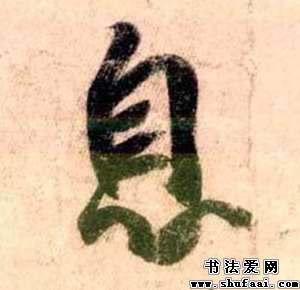 息
书法爱网
www.shufaai.com